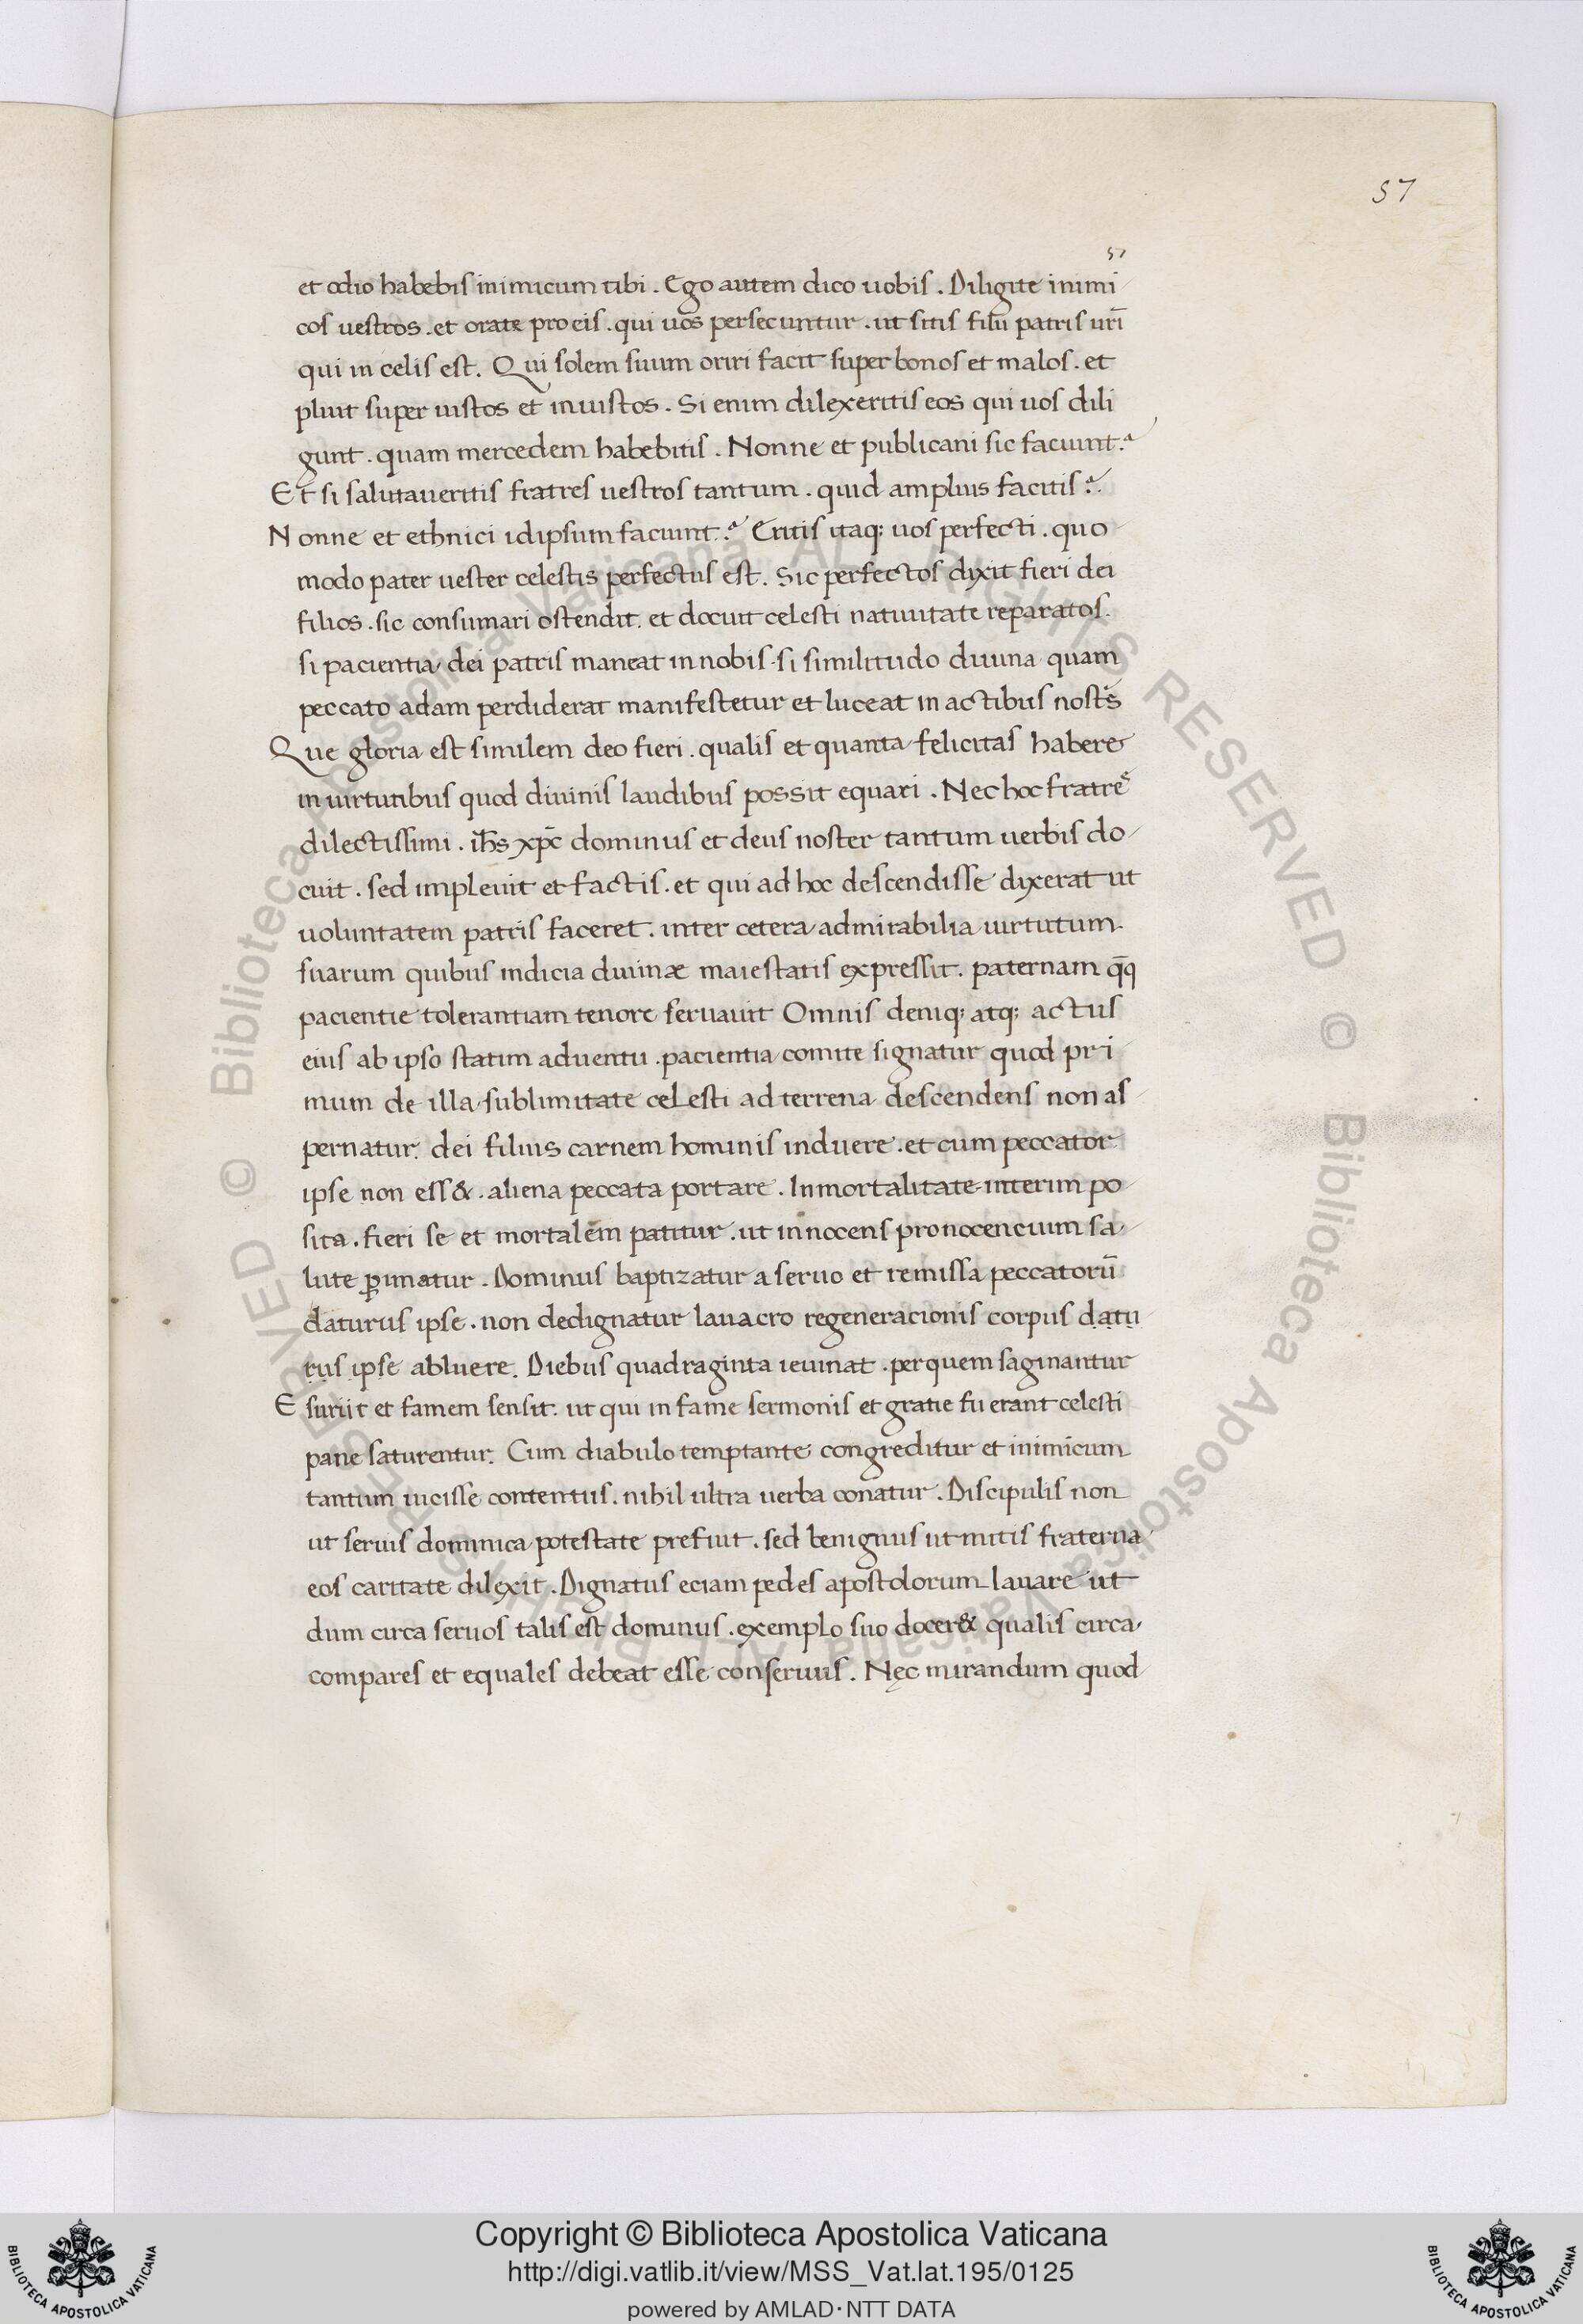 57
57
et odio habebis inimicum tibi . Ego autem dico uobis . Diligite inimi
cos uestros . et orate pro eis . qui uos persecuntur . ut sitis filii patris ur̄i
qui in celis est . Qui solem suum oriri facit super bonos et malos . et
pluit super iustos et iniustos . Si enim dilexeritis eos qui uos dili
gunt . quam mercedem habebitis . Nonne et publicani sic faciunt ?
Et si salutaueritis fratres uestros tantum . quid amplius facitis ?
Nonne et ethnici idipsum faciunt ? Eritis itaq; uos perfecti . quo
modo pater uester celestis perfectus est . Sic perfectos dixit fieri dei
filios . sic consumari ostendit . et docuit celesti natiuitate reparatos .
si paciencia dei patris maneat in nobis . si similitudo diuina quam
peccato adam perdiderat manifestetur et luceat in actibus nost̄s
Que gloria est similem deo fieri . qualis et quanta felicitas habere
in uirtutibus quod diuinis laudibus possit equari . Nec hoc fratres
dilectissimi . ih̄s xp̄c dominus et deus noster tantum uerbis do
cuit . sed impleuit et factis . et qui ad hoc descendisse dixerat ut
uoluntatem patris faceret . inter cetera admirabilia uirtutum
suarum quibus indicia diuinæ maiestatis expressit . paternam q̄q
pacientie tolerantiam tenore seruauit Omnis deniq; atq; actus
eius ab ipso statim aduentu . pacientia comite signatur quod pri
mum de illa sublimitate celesti ad terrena descendens non as
pernatur . dei filius carnem hominis induere . et cum peccator
ipse non ess& . aliena peccata portare . Inmortalitate interim po
sita . fieri se et mortalem patitur . ut innocens pro nocencium sa
lute ꝑimatur . Dominus baptizatur a seruo et remissa peccatorū
daturus ipse . non dedignatur lauacro regeneracionis corpus datu
rus ipse abluere . Diebus quadraginta ieiunat . per quem saginantur
Esuriit et famem sensit . ut qui in fame sermonis et gratie fuerant celesti
pane saturentur . Cum diabulo temptante congreditur et inimicum
tantum uicisse contentus . nihil ultra uerba conatur . Discipulis non
ut seruis dominica potestate prefiut . sed benignus ut mitis fraterna
eos caritate dilexit . Dignatus eciam pedes apostolorum lauare ut
dum circa seruos talis est dominus . exemplo suo docer& qualis circa
compares et equales debeat esse conseruus . Nec mirandum quod
© Biblioteca Apostolica Vaticana ALL RIGHTS RESERVED
© Biblioteca Apostolica Vaticana ALL RIGHTS RESERVED
Copyright © Biblioteca Apostolica Vaticana
http://digi.vatlib.it/view/MSS_Vat.lat.195/0125
powered by AMLAD·NTT DATA
BIBLIOTECA APOSTOLICA VATICANA
BIBLIOTECA APOSTOLICA VATICANA